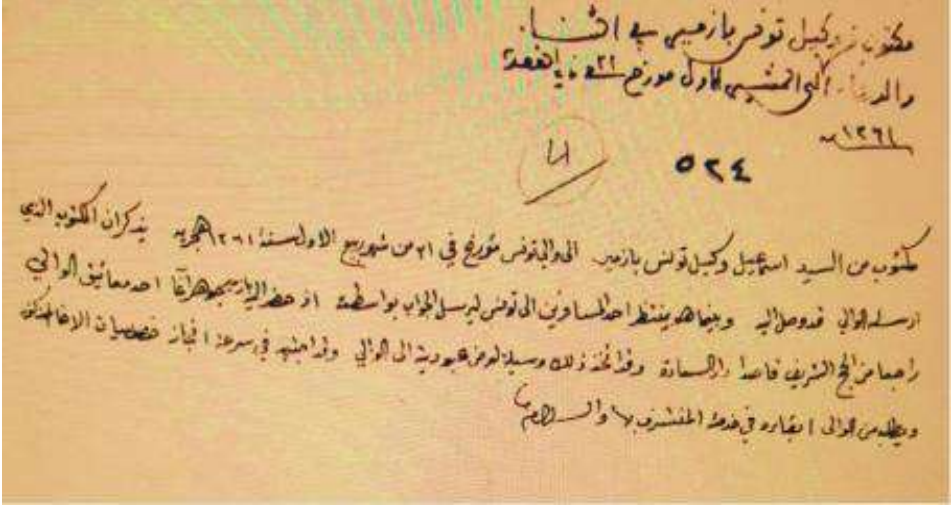 مكتوب من وكيل تونس بازمير في الثنا
والدعاء الى المشير الاول مورخ ٢١ القعدة
١٢٦١ـنة
٥٢٤
مكتوب من السيد اسماعيل وكيل تونس بازمير الى والي تونس مؤرخ في ٢١ من شهر ربيع الاول سنة ١٢٦١ هجرية يذكر ان المكتوب الذي
ارسله الوالي قد وصل اليه وبينما هو ينتظر احد المسافرين الى تونس ليرسل الجواب بواسطته اذ حضر اليه ازمير جوهر آغا احد معاتيق الوالي
راجعا من الحج الشريف قاصدا دار السعادة وقد اتخذ ذلك وسيلة لعرض عبوديته الى الوالي وقد اجتهد في سرعة انجاز خصوصيات الاغا المذكور
ويطلب من الوالي ابقاءه في خدمته المتشرف بها والسلام